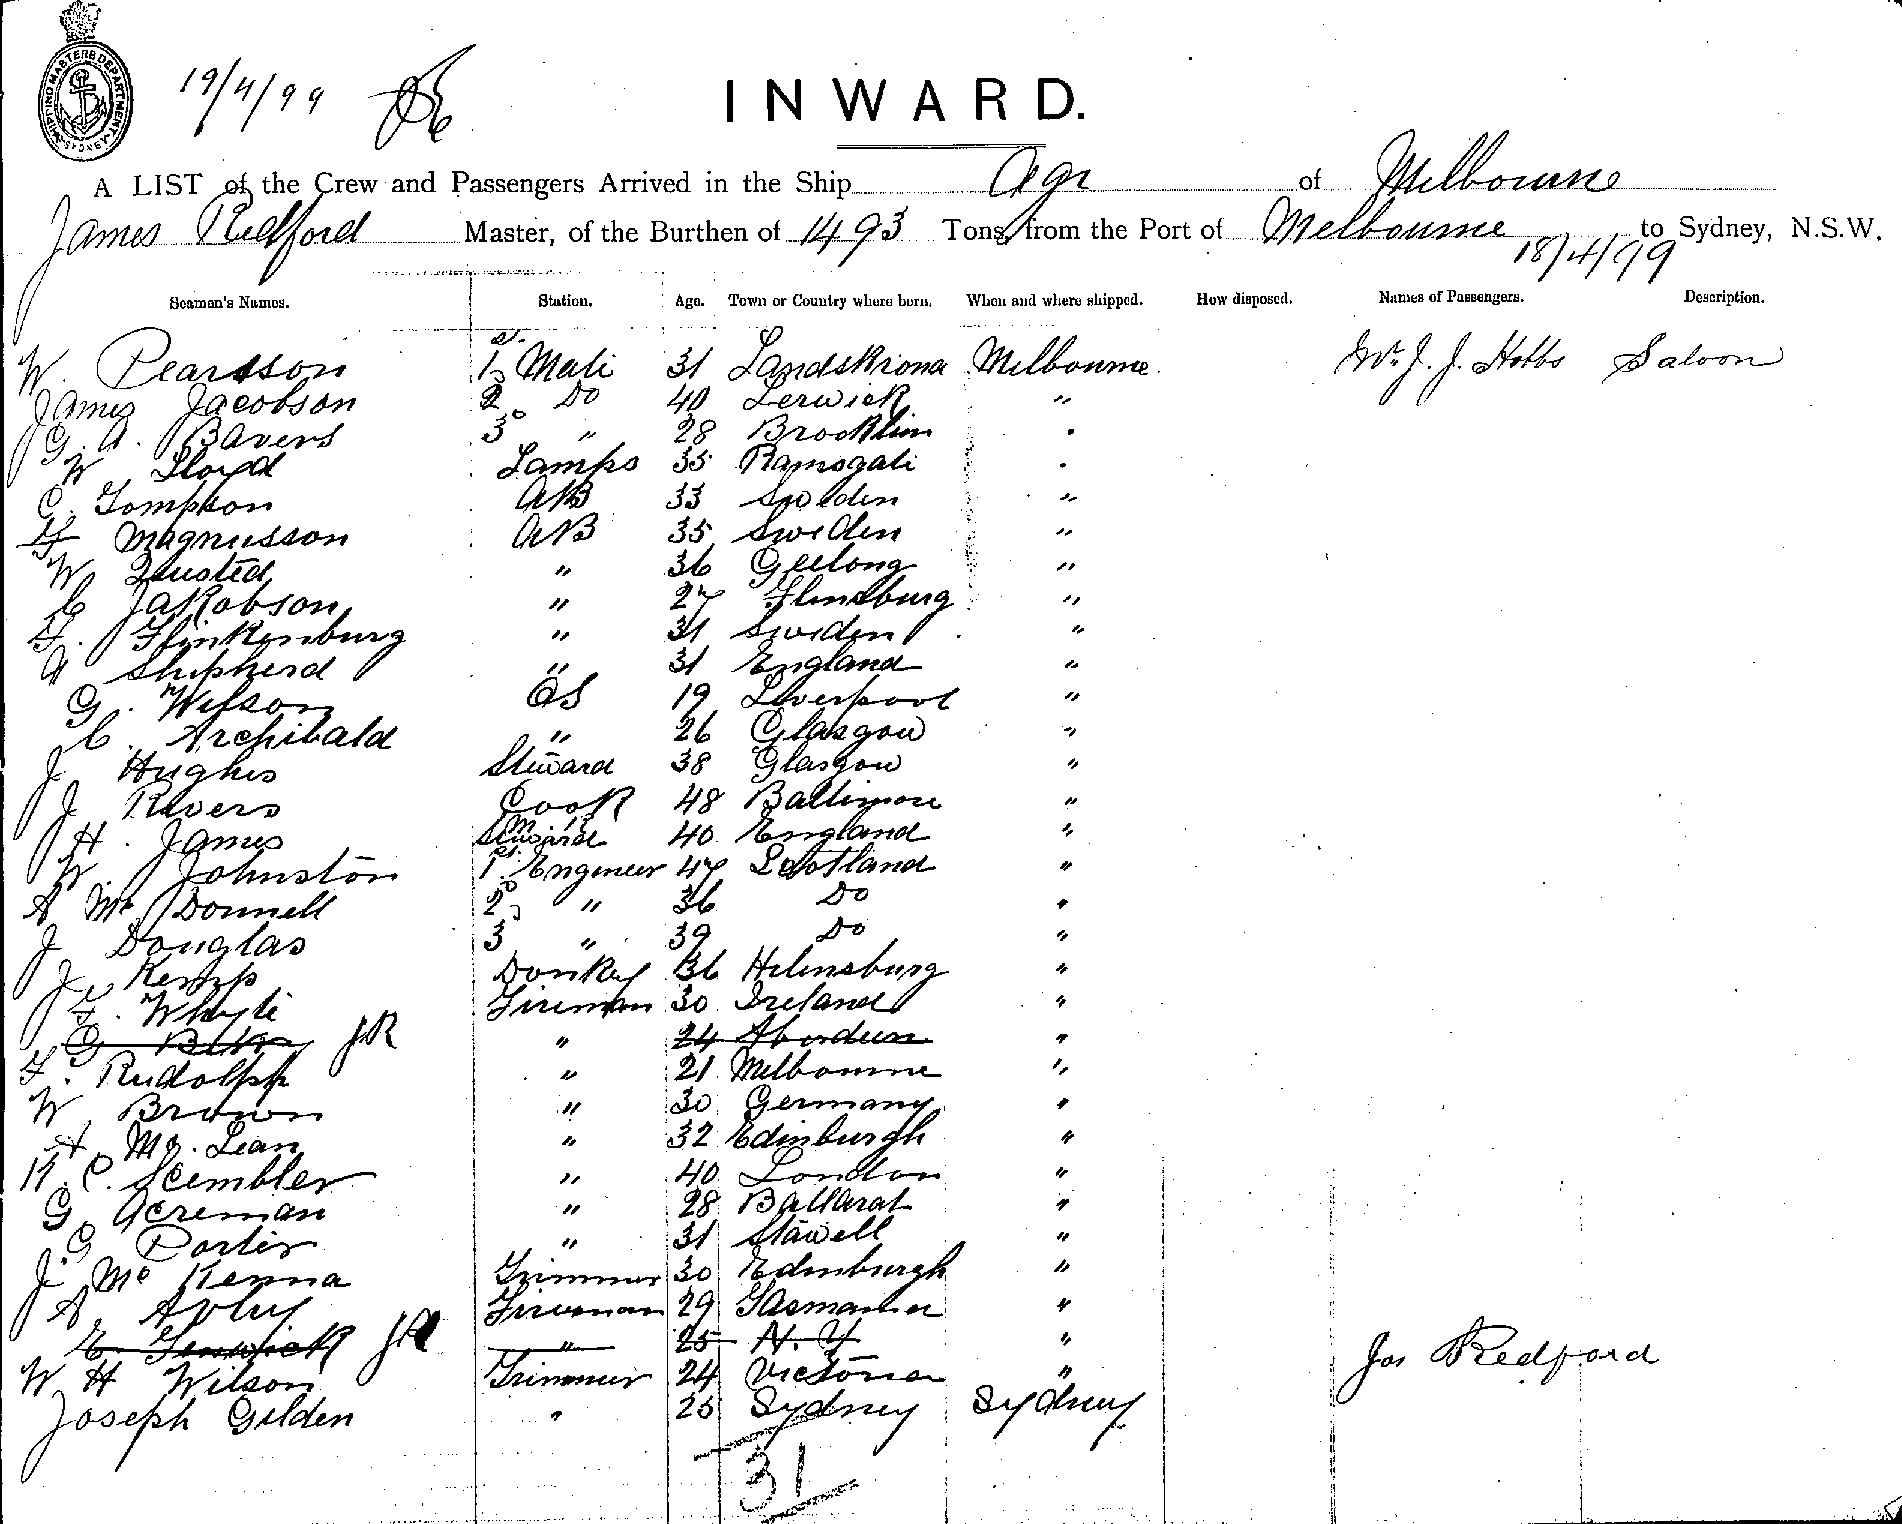 SHIPPING MASTERS DEPARTMENT
19/4/99
INWARD.
A LIST of the Crew and Passengers Arrived in the Ship Age of Melbourne
James Redford Master, of the Burthen of 1493 Tons, from the Port of Melbourne to Sydney, N.S.W.
18/4/99
Seaman's Names. Station. Age. Town or Country where born. When and where shipped. How disposed. Names of Passengers. Description.
W. Pearsson 1st Mate 31 Landskrona Melbourne Mr. J. J. Hobbs Saloon
James Jacobson 2 Do 40 Lerwick "
G. A. Bavers 3 " 28 Brooklin "
W Lloyd Lamps 35 Ramsgate "
C. Tompson AB 33 Sweden "
Magnusson AB 35 Sweden "
W " 36 Geelong "
C Jakobson " 27 Flensburg "
F. Flinkenburg " 31 Sweden "
A Shepherd " 31 England "
G. Wilson OS 19 Liverpool "
C. Archibald " 26 Glasgow "
J Hughes Steward 38 Glasgow "
J Rivers Cook 48 Baltimore "
H. James Steward 40 England "
W. Johnston 1st Engineer 47 Scotland "
A McDonnell 2 " 36 Do "
J Douglas 3 " 39 Do "
J. Kemp Donkey 36 Helensburg "
F. Whyte Fireman 30 Ireland "
G JR " 24 Aberdeen "
F. Rudolph " 21 Melbourne "
W Brown " 30 Germany "
A McLean " 32 Edinburgh "
H. C. Scembler " 40 London "
G Acreman " 28 Ballarat "
G Porter " 31 Stawell "
J McKenna Trimmer 30 Edinburgh "
A Fireman 29 Tasmania "
E. Fenwick JR " 25 N. Y "
W H Wilson Trimmer 24 Victoria "
Jas Redford
Joseph Gilden " 25 Sydney Sydney
31